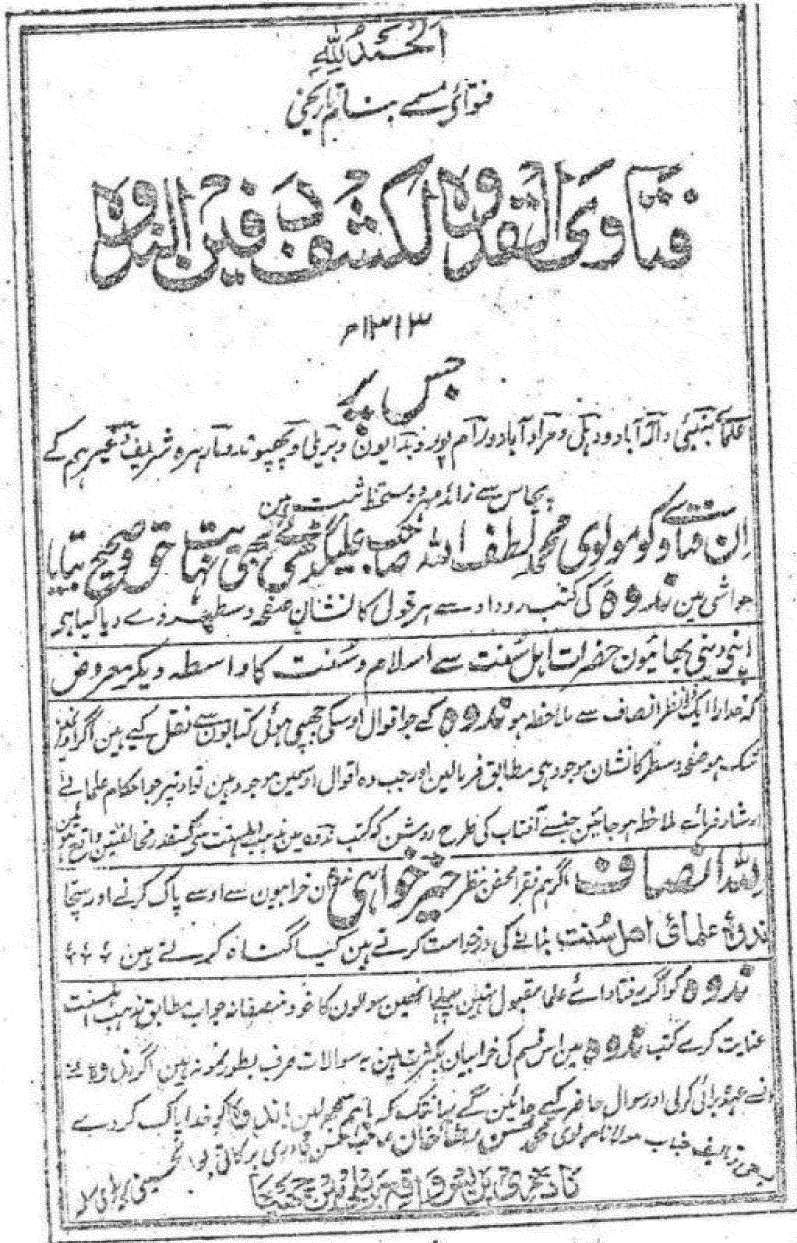 الحمد للہ
فتوائے مسمے بنام تاریخی
فتاوی القدوہ لکشف دفین الندوہ
۱۳۱۳ھ
جس پر
علمائے بمبئی والہ آباد ودہلی ومراد آباد ورام پور وبدایون وبریلی وپھپوند ومارہرہ شریف وغیرہم کے
پچاس سے زائد مہر ودستخط ثبت ہین
ان فتاوے کو مولوی محمد لطف اللہ صاحب علیگڑھی نے بھی نہایت حق وصحیح بتایا
حواشی مین ندوہ کی کتب روداد سے ہر قول کا نشان صفحہ وسطر دے دیا گیا ہے
اپنی دینی بھائیون حضرات اہل سنت سے اسلام وسنت کا واسطہ دیکر معروض
کہ خدارا ایک نظر انصاف سے ملاحظہ ہو ندوہ کے جو اقوال اوسکی چھپی ہوئی کتابون سے نقل کیے ہین اگر
شک ہو صفحہ وسطر کا نشان موجود ہی مطابق فرمالین اور جب وہ اقوال اوسمین موجود ہین تو اونپر جو احکام علمائے
ارشاد فرمائے ملاحظہ ہو جائین جنسے آفتاب کی طرح روشن کہ کتب ندوہ مین مذہب اہلسنت سے کسقدر مخالفتین واقع ہوئین
للہ انصاف اگر ہم فقرا محض بنظر خیر خواہی ان خرابیون سے اوسے پاک کرنے اور سچا
ندوۂ علمائے اہل سنت بنانے کی درخواست کرتے ہین کیا گناہ کرتے ہین
ندوہ کو اگر یہ فتاوائے علما مقبول نہین پہلے انھین سوالون کا خود منصفانہ جواب مطابق مذہب اہلسنت
عنایت کرے کتب ندوہ مین اس قسم کی خرابیان بکثرت ہین یہ سوالات صرف بطور نمونہ ہین اگر ندوہ نے
انسے عہدہ برائی کرلی اور سوال حاضر کیے جائین گے یہانتک کہ باہم سمجھ لین یا ندوہ کو خدا پاک کر دے
تالیف جناب مولانا مولوی محمد حسن رضا خان صاحب حسن قادری برکاتی
نادری پریس واقع بریلی مین چھپا